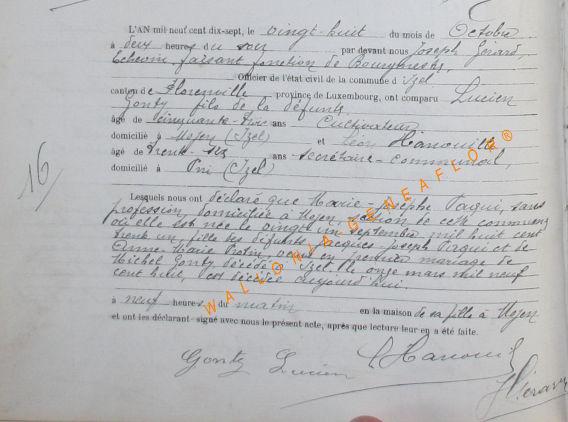 L'AN mil neuf cent dix-sept, le vingt-huit du mois de Octobre
à deux heures du soir par devant nous Joseph Gérard,
Echevin, faisant fonction de Bourgmestre,
Officier de l'état civil de la commune d'Izel
canton de Florenville, province de Luxembourg, ont comparu Lucien
Gonty fils de la défunte
âgé de cinquante-trois ans Cultivateur
domicilié à Moyen (Izel) et Léon Hanouille
âgé de trente-six ans secrétaire-communal,
domicilié à Pin (Izel)
16
Lesquels nous ont déclaré que Marie-Josèphe Paqui, sans
profession, domiciliée à Moyen, section de cette commune
où elle est née le vingt un septembre mil huit cent
trente un, fille des défunts Jacques Joseph Paqui et de
Anne-Marie, veuve en premier mariage de
Michel Gonty décédé à Izel le onze mars mil neuf
cent huit, est décédée aujourd'hui.
à neuf heures du matin en la maison de sa fille à Moyen
et ont les déclarant signé avec nous le présent acte, après que lecture leur en a été faite.
Gonty Lucien
L Hanouille
J Gérard
WALLONIA GENEAFLOR ®